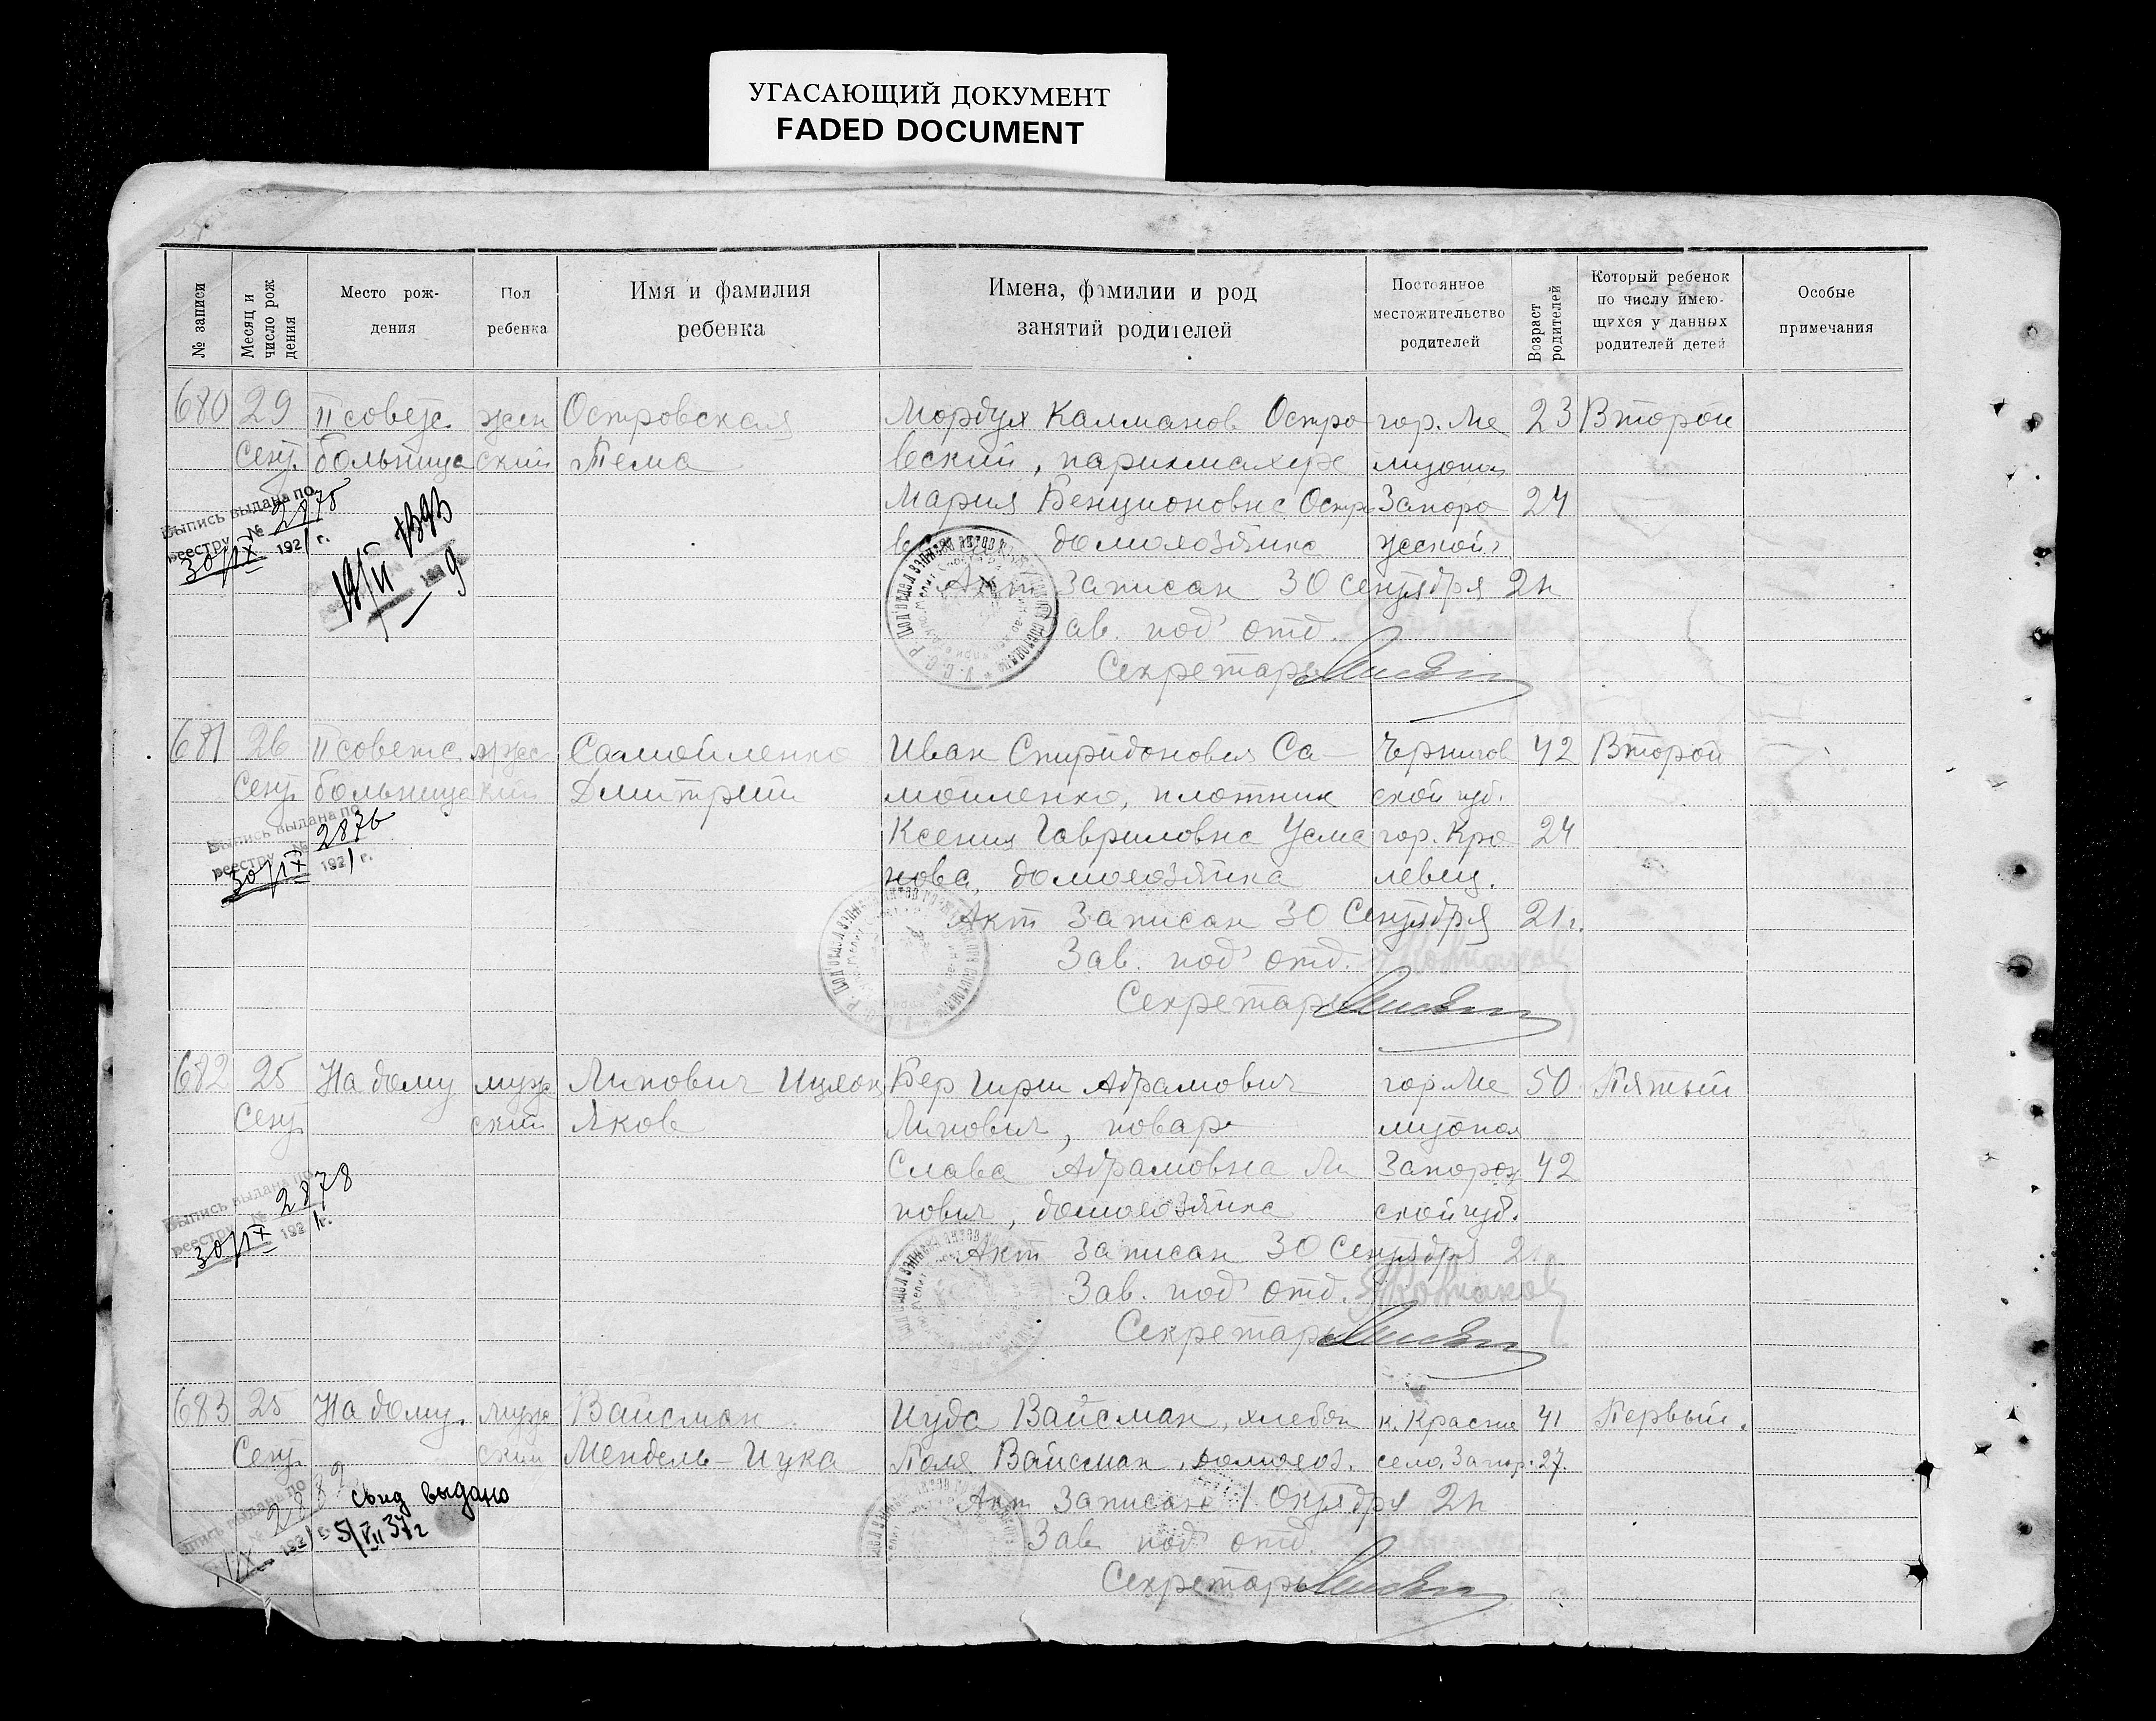 УГАСАЮЩИЙ ДОКУМЕНТ
FADED DOCUMENT
№ записи
Месяц и число рождения
Место рождения
Пол ребенка
Имя и фамилия ребенка
Имена, фамилии и род занятий родителей
Постоянное местожительство родителей
Возраст родителей
Который ребенок по числу имеющихся у данных родителей детей
Особые примечания
680 29 II советс. жен Островская Мордух Калманов Остро гор. Ме 23 Второй
Сент. больница ский Тема вский, парикмахер литопол
Мария Бенционовна Остр Запоро 24
домохозяйка
Выпись выдана по
реестру № 2875
30/IX 1921 г.
Акт записан 30 Сентября 21
Зав. под'отд.
Секретарь
681 26 II советс. мужс Самойленко Иван Спиридонович Са- Чернигов 42 Второй
Сент. больница кий Дмитрий мойленко, плотник ской губ.
Ксения Гавриловна Усма гор. Кро 24
нова, домохозяйка левец.
Выпись выдана по
реестру № 2876
30/IX 1921 г.
Акт записан 30 Сентября 21 г.
Зав. под'отд.
Секретарь
682 25 На дому муж Липович Ицхок Бер Гирш Абрамович гор. Ме 50 Пятый
Сент. ский Яков Липович, повар литопол
Слава Абрамовна Ли Запорож 42
пович, домохозяйка ской губ.
Выпись выдана по
реестру № 2878
30/IX 1921 г.
Акт записан 30 Сентября
Зав. под'отд.
Секретарь
683 25 На дому. муж Вайсман Иуда Вайсман, хлебоп к. Красно 41 Первый.
Сент. ский Мендель-Иука Поля Вайсман, домохоз. село, Запор. 27.
свид выдано
5/VII 37 г
Акт записан 1 Октября 21
Зав. под'отд.
Секретарь